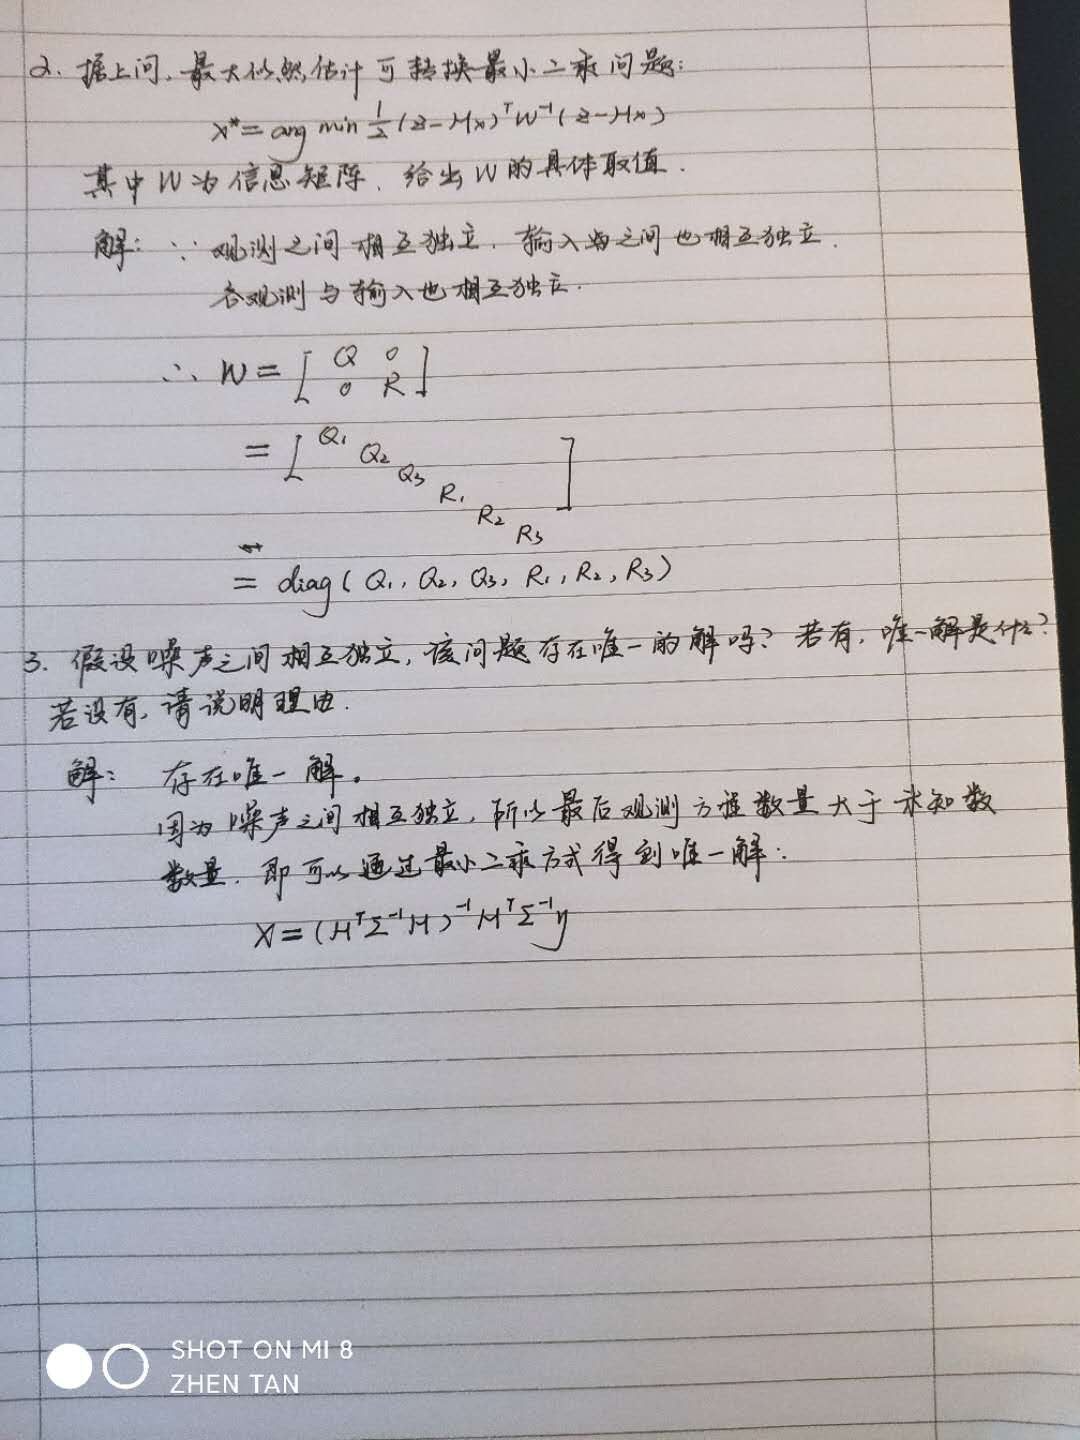 2. 据上问,最大似然估计可转换最小二乘问题:
x* = arg min 1/2 (z-Hx)ᵀW⁻¹(z-Hx)
其中W为信息矩阵、给出W的具体取值.
解: ∵ 观测之间相互独立, 输入之间也相互独立.
各观测与输入也相互独立.
∴ W = [ Q 0
0 R ]
= [ Q₁
Q₂
Q₃
R₁
R₂
R₃ ]
= diag( Q₁, Q₂, Q₃, R₁, R₂, R₃ )
3. 假设噪声之间相互独立, 该问题存在唯一的解吗? 若有, 唯一解是什么?
若没有, 请说明理由.
解: 存在唯一解。
因为噪声之间相互独立, 所以最后观测方程数量大于未知数
数量. 即可以通过最小二乘方式得到唯一解:
X = (HᵀΣ⁻¹H)⁻¹HᵀΣ⁻¹y
SHOT ON MI 8
ZHEN TAN